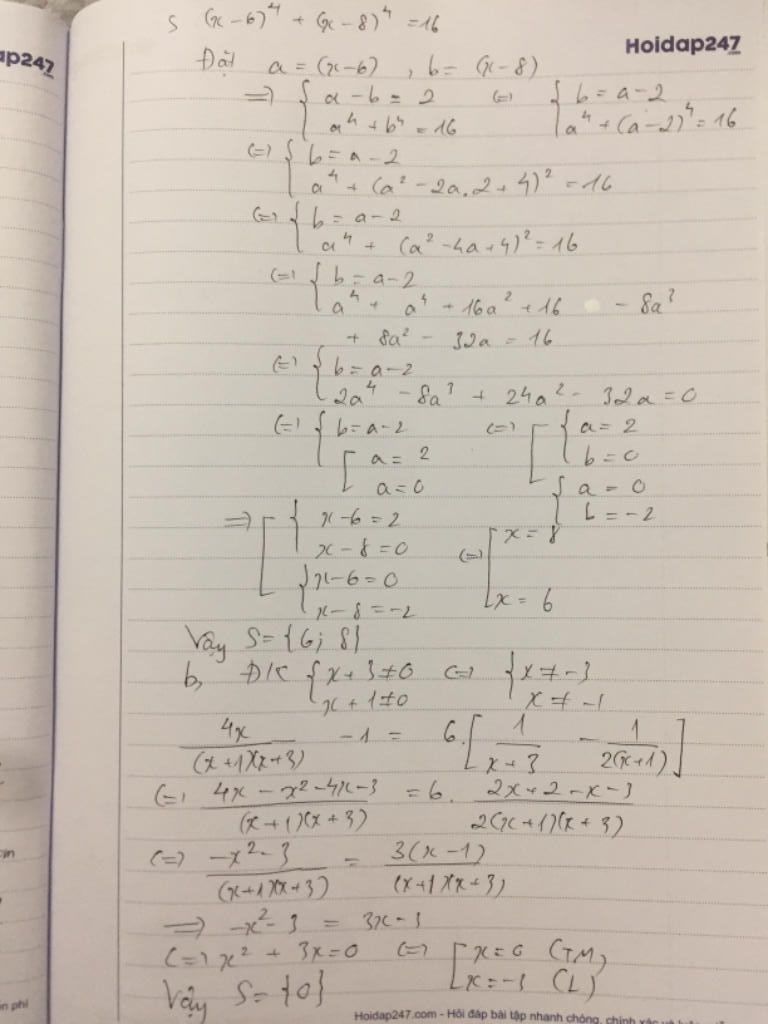 s (x-6)⁴ + (x-8)⁴ = 16
ap247
Hoidap247
Đặt a = (x-6) , b = (x-8)
=> { a - b = 2 (=) { b = a-2
a⁴ + b⁴ = 16 a⁴ + (a-2)⁴ = 16
(=) { b = a-2
a⁴ + (a² - 2a.2 + 4)² = 16
(=) { b = a-2
a⁴ + (a² - 4a + 4)² = 16
(=) { b = a-2
a⁴ + a⁴ + 16a² + 16 - 8a³
+ 8a² - 32a = 16
(=) { b = a-2
2a⁴ - 8a³ + 24a² - 32a = 0
(=) { b = a-2 (=) [ { a = 2
[ a = 2 b = 0
a = 0 { a = 0
b = -2
=> [ { x-6 = 2
x-8 = 0 (=) [ x = 8
{ x-6 = 0
x-8 = -2 x = 6
Vậy S = {6; 8}
b, ĐK { x+3 ≠ 0 (=) { x ≠ -3
x+1 ≠ 0 x ≠ -1
4x/((x+1)(x+3)) - 1 = 6.[1/(x+3) - 1/(2(x+1))]
(=) (4x - x² - 4x - 3)/((x+1)(x+3)) = 6. (2x+2-x-3)/(2(x+1)(x+3))
(=) (-x²-3)/((x+1)(x+3)) = 3(x-1)/((x+1)(x+3))
=> -x²-3 = 3x-3
(=) x² + 3x = 0 (=) [ x = 0 (TM)
x = -3 (L)
Vậy S = {0}
n phí
Hoidap247.com - Hỏi đáp bài tập nhanh chóng, chính xác